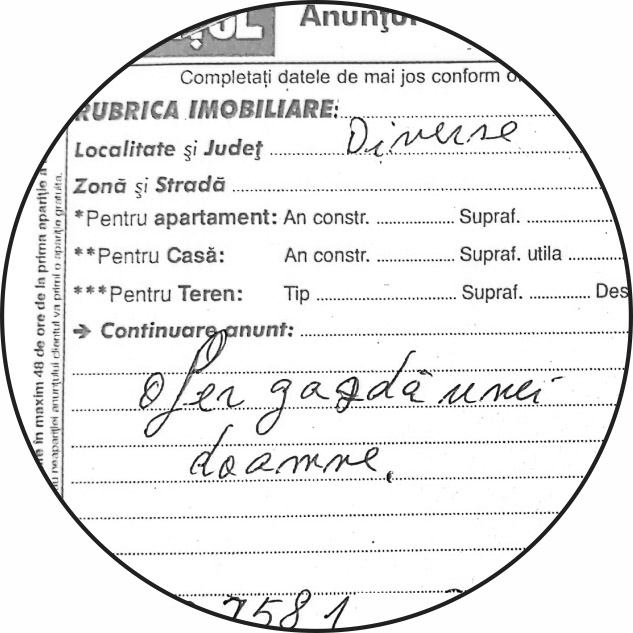 Anunţul
Completați datele de mai jos conform
RUBRICA IMOBILIARE:
Diverse
Localitate și Județ
Zonă și Stradă
*Pentru apartament: An constr. Supraf.
**Pentru Casă: An constr. Supraf. utila
***Pentru Teren: Tip Supraf. Des
→ Continuare anunt:
ofer gazdă unei
doamne.
7581
în maxim 48 de ore de la prima apariție a
neapariției anunțului clientul va primi o apariție gratuita.